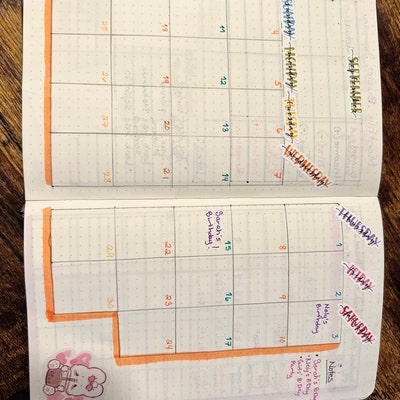 SEPTEMBER
September
SUNDAY
Sunday
MONDAY
Monday
TUESDAY
Tuesday
WEDNESDAY
Wednesday
THURSDAY
Thursday
FRIDAY
Friday
SATURDAY
Saturday
1 2 3
Naly's
Birthday
4 5 6 7 8 9 10
11 12 13 14 15 16 17
Sarah's
Birthday!
18 19 20 21 22 23 24
25 26 27 28 29 30
Notes
• Sarah's
• Naly's B Day
B Day
Party